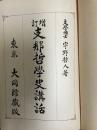 文學博士 宇野哲人著
增訂
支那哲學史講話
東京 大同館藏版